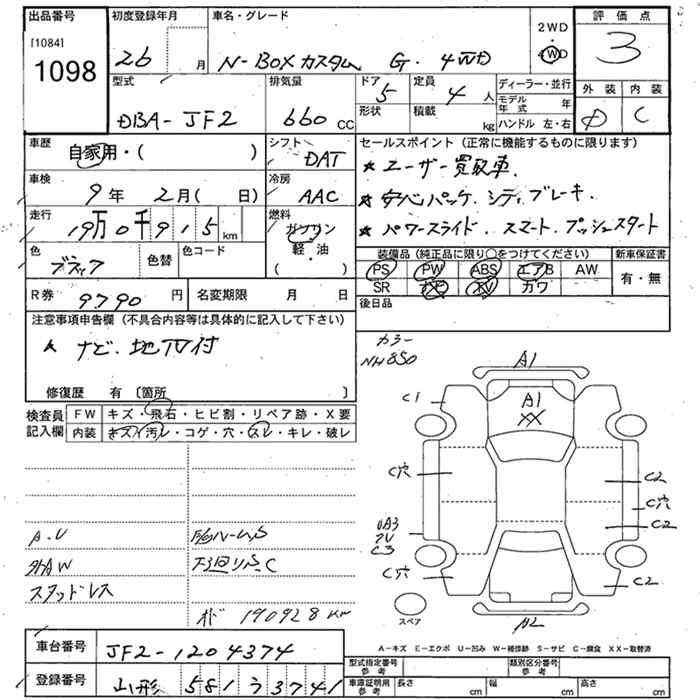 出品番号 初度登録年月 車名・グレード 2WD 評価点
[1084]
1098 26 月 N-BOXカスタム G・4WD 4WD 3
型式 排気量 ドア 定員 ディーラー・並行 外装 内装
DBA-JF2 660 CC 5 4 人 モデル年式 年 C
形状 積載 kg ハンドル 左・右
車歴 自家用・( ) シフト DAT セールスポイント(正常に機能するものに限ります)
★ユーザー買取車.
車検 9年 2月( 日) 冷房 AAC
★安心パッケ.シティブレーキ.
走行 19万0千915km 燃料 ガソリン 軽・油 ( )
★パワースライド.スマート.プッシュスタート
色 ブラック 色替 色コード
装備品(純正品に限り○をつけてください) 新車保証書
PS PW ABS エアB AW 有・無
SR ナビ TV カワ
R券 9790 円 名変期限 月 日
後日品
注意事項申告欄(不具合内容等は具体的に記入して下さい)
★ナビ.地デジ付
修復歴 有〔箇所 〕
カラー
NH850
検査員記入欄 FW キズ・飛石・ヒビ割・リペア跡・X要
内装 キズ・汚レ・コゲ・穴・スレ・キレ・破レ
A1
C1 A1
XX
C穴 C2
C穴
UA3 C2
C3
C穴 C2
スペア A2
A.U
外AW 下回リS.C
スタッドレス
190928km
A-キズ E-エクボ U-凹み W-補修跡 S-サビ C-腐食 XX-取替済
車台番号 JF2-1204374
型式指定番号 参考 類別区分番号 参考
登録番号 山形 581 ラ 3741
車庫証明用 参考 長さ cm 幅 cm 高さ cm